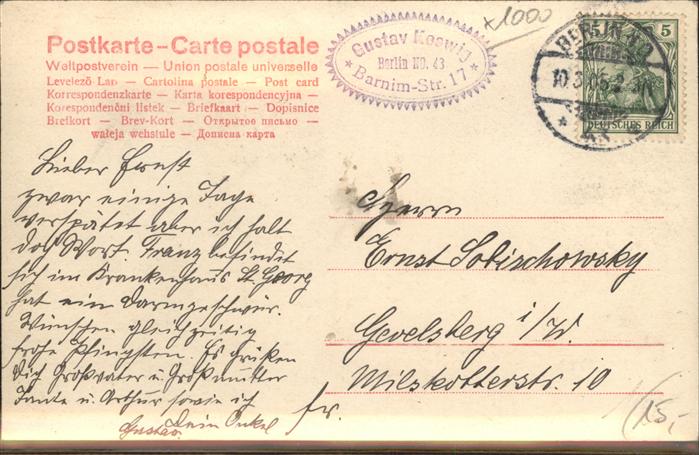 Postkarte – Carte postale
Weltpostverein — Union postale universelle
Levelező Lap — Cartolina postale — Post card
Korrespondenzkarte — Karta korespondencyjna —
Korespondenční lístek — Briefkaart — Dopisnice
Breikort — Brev-Kort — Открытое письмо —
wałeja wehstule — Дописна карта
Gustav Koswig
Berlin NO. 43
* Barnim-Str. 17 *
x1000
BERLIN
10.3.06.2-3N
5 5
DEUTSCHES REICH
Lieber Ernst
zwar einige Tage
verspätet aber ich halt
das Wort. Franz befindet
sich im Krankenhaus St. Georg
hat ein Darmgeschwür.
Wünschen gleichzeitig
frohe Pfingsten. Es grüßen
Dich Großvater u. Großmutter
Tante u. Arthur sowie ich
Dein Onkel
Gustav.
Herrn
Ernst Sobischowsky
Gevelsberg i/W.
Milskotterstr. 10
fr.
15,-